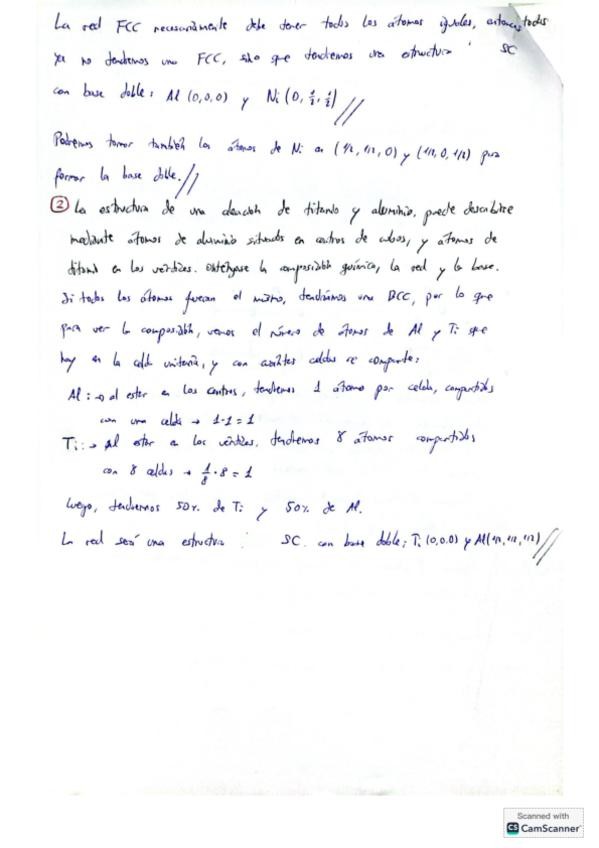 La red FCC necesariamente debe tener todos los átomos iguales, entonces todos
ya no tendremos una FCC, sino que tendremos una estructura SC
con base doble: Al (0,0,0) y Ni (0, 1/2, 1/2)//
Podremos tomar también los átomos de Ni en (1/2, 1/2, 0) y (1/2, 0, 1/2) para
formar la base doble.//
② La estructura de una aleación de titanio y aluminio, puede describirse
mediante átomos de aluminio situados en centros de cubos, y átomos de
titanio en los vértices. Obténgase la composición química, la red y la base.
Si todos los átomos fueran el mismo, tendríamos una BCC, por lo que
para ver la composición, vemos el número de átomos de Al y Ti que
hay en la celda unitaria, y con cuántas celdas se comparte:
Al: → al estar en los centros, tendremos 1 átomo por celda, compartidos
con una celda → 1·1 = 1
Ti: → Al estar en los vértices, tendremos 8 átomos compartidos
con 8 celdas → 1/8 · 8 = 1
Luego, tendremos 50% de Ti y 50% de Al.
La red será una estructura SC. con base doble; Ti (0,0,0) y Al (1/2, 1/2, 1/2)//
Scanned with
CS CamScanner